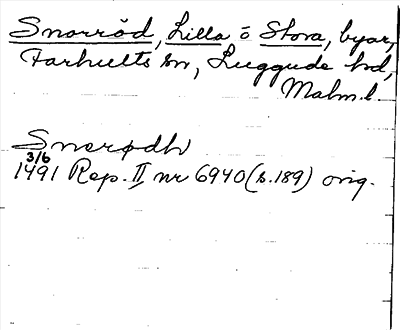 Snorröd, Lilla o Stora, byar,
Farhults sn, Luggude hd,
Malm. l.
Snerødh
3/6
1491 Rep. II nr 6940 (s. 189) orig.